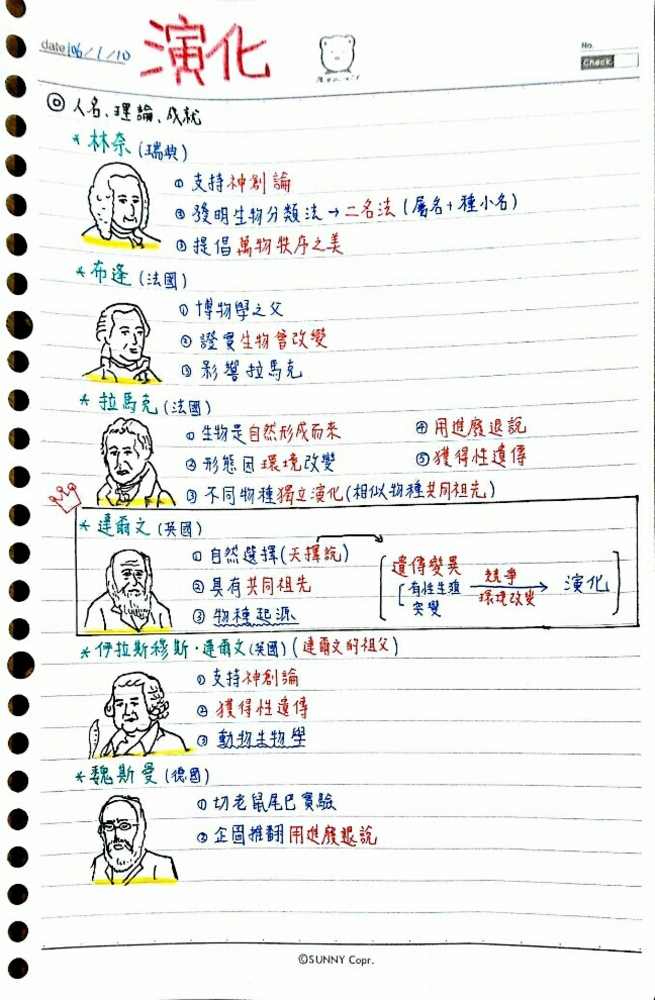 date 106/1/10
演化
No.
Check
◎ 人名、理論、成就
* 林奈 (瑞典)
① 支持神創論
② 發明生物分類法 → 二名法 (屬名+種小名)
③ 提倡萬物秩序之美
* 布逢 (法國)
① 博物學之父
② 證實生物會改變
③ 影響拉馬克
* 拉馬克 (法國)
① 生物是自然形成而來
② 形態因環境改變
③ 不同物種獨立演化 (相似物種共同祖先)
④ 用進廢退說
⑤ 獲得性遺傳
* 達爾文 (英國)
① 自然選擇 (天擇說)
② 具有共同祖先
③ 物種起源
遺傳變異
有性生殖
突變
競爭
環境改變
演化
* 伊拉斯穆斯·達爾文 (英國) (達爾文的祖父)
① 支持神創論
② 獲得性遺傳
③ 動物生物學
* 魏斯曼 (德國)
① 切老鼠尾巴實驗
② 企圖推翻用進廢退說
©SUNNY Copr.